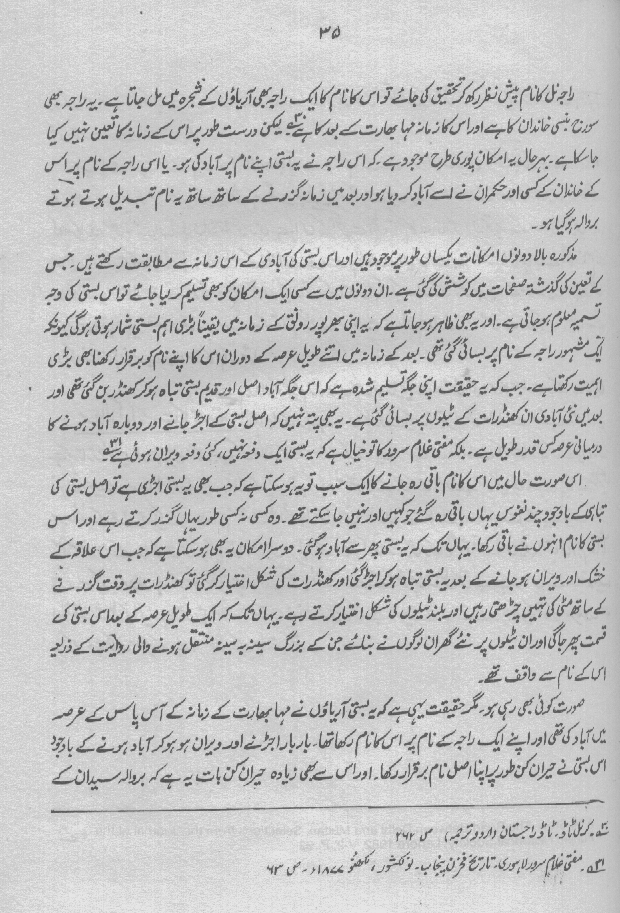 ۳۵
راجہ نل کا نام پیش نظر رکھ کر تحقیق کی جائے تو اس کا نام کا ایک راجہ بھی آریاؤں کے شجرہ میں مل جاتا ہے۔ یہ راجہ بھی
سورج بنسی خاندان کا ہے اور اس کا زمانہ مہا بھارت کے بعد کا ہے۳۰ لیکن درست طور پر اس کے زمانہ کا تعین نہیں کیا
جاسکا ہے۔ بہرحال یہ امکان پوری طرح موجود ہے کہ اس راجہ نے یہ بستی اپنے نام پر آباد کی ہو۔ یا اس راجہ کے نام پر اس
کے خاندان کے کسی اور حکمران نے اسے آباد کر دیا ہو اور بعد میں زمانہ گزرنے کے ساتھ ساتھ یہ نام تبدیل ہوتے ہوتے
بروالہ ہو گیا ہو۔
مذکورہ بالا دونوں امکانات یکساں طور پر موجود ہیں اور اس بستی کی آبادی کے اس زمانہ سے مطابقت رکھتے ہیں۔ جس
کے تعین کی گذشتہ صفحات میں کوشش کی گئی ہے۔ ان دونوں میں سے کسی ایک امکان کو بھی تسلیم کر لیا جائے تو اس بستی کی وجہ
تسمیہ معلوم ہو جاتی ہے۔ اور یہ بھی ظاہر ہو جاتا ہے کہ یہ اپنی بھرپور رونق کے زمانہ میں یقیناً بڑی اہم بستی شمار ہوتی ہوگی کیونکہ
ایک مشہور راجہ کے نام پر بسائی گئی تھی۔ بعد کے زمانہ میں اتنے طویل عرصہ کے دوران اس کا اپنے نام کو برقرار رکھنا بھی بڑی
اہمیت رکھتا ہے۔ جب کہ یہ حقیقت اپنی جگہ تسلیم شدہ ہے کہ اس جگہ آباد اصل اور قدیم بستی تباہ ہو کر کھنڈر بن گئی تھی اور
بعد میں نئی آبادی ان کھنڈرات کے ٹیلوں پر بسائی گئی ہے۔ یہ بھی پتہ نہیں کہ اصل بستی کے اجڑ جانے اور دوبارہ آباد ہونے کا
درمیانی عرصہ کس قدر طویل ہے۔ بلکہ مفتی غلام سرور کا تو خیال ہے کہ یہ بستی ایک دفعہ نہیں، کئی دفعہ ویران ہوئی ہے۳۱
اس صورت حال میں اس کا نام باقی رہ جانے کا ایک سبب تو یہ ہو سکتا ہے کہ جب بھی یہ بستی اجڑی ہے تو اصل بستی کی
تباہی کے باوجود چند نفوس یہاں باقی رہ گئے جو کہیں اور نہیں جا سکتے تھے۔ وہ کسی نہ کسی طور یہاں گذر کرتے رہے اور اس
بستی کا نام انہوں نے باقی رکھا۔ یہاں تک کہ یہ بستی پھر سے آباد ہوگئی۔ دوسرا امکان یہ بھی ہو سکتا ہے کہ جب اس علاقہ کے
خشک اور ویران ہو جانے کے بعد یہ بستی تباہ ہو کر اجڑ گئی اور کھنڈرات کی شکل اختیار کر گئی تو کھنڈرات پر وقت گزرنے
کے ساتھ مٹی کی تہیں چڑھتی رہیں اور بلند ٹیلوں کی شکل اختیار کرتے رہے۔ یہاں تک کہ ایک طویل عرصہ کے بعد اس بستی کی
قسمت پھر جاگی اور ان ٹیلوں پر نئے گھر ان لوگوں نے بنائے جن کے بزرگ سینہ بہ سینہ منتقل ہونے والی روایت کے ذریعہ
اس کے نام سے واقف تھے۔
صورت کوئی بھی رہی ہو۔ مگر حقیقت یہی ہے کہ یہ بستی آریاؤں نے مہا بھارت کے زمانہ کے آس پاس کے عرصہ
میں آباد کی تھی اور اپنے ایک راجہ کے نام پر اس کا نام رکھا تھا۔ بار بار اجڑنے اور ویران ہو ہو کر آباد ہونے کے باوجود
اس بستی نے حیران کن طور پر اپنا اصل نام برقرار رکھا۔ اور اس سے بھی زیادہ حیران کن بات یہ ہے کہ بروالہ سیدان کے
۳۰۔ کرنل ٹاڈ۔ ٹاڈ راجستان (اردو ترجمہ) ص ۲۶۲
۳۱۔ مفتی غلام سرور لاہوری۔ تاریخ مخزن پنجاب۔ نولکشور، لکھنؤ ۱۸۷۷ء۔ ص ۶۳